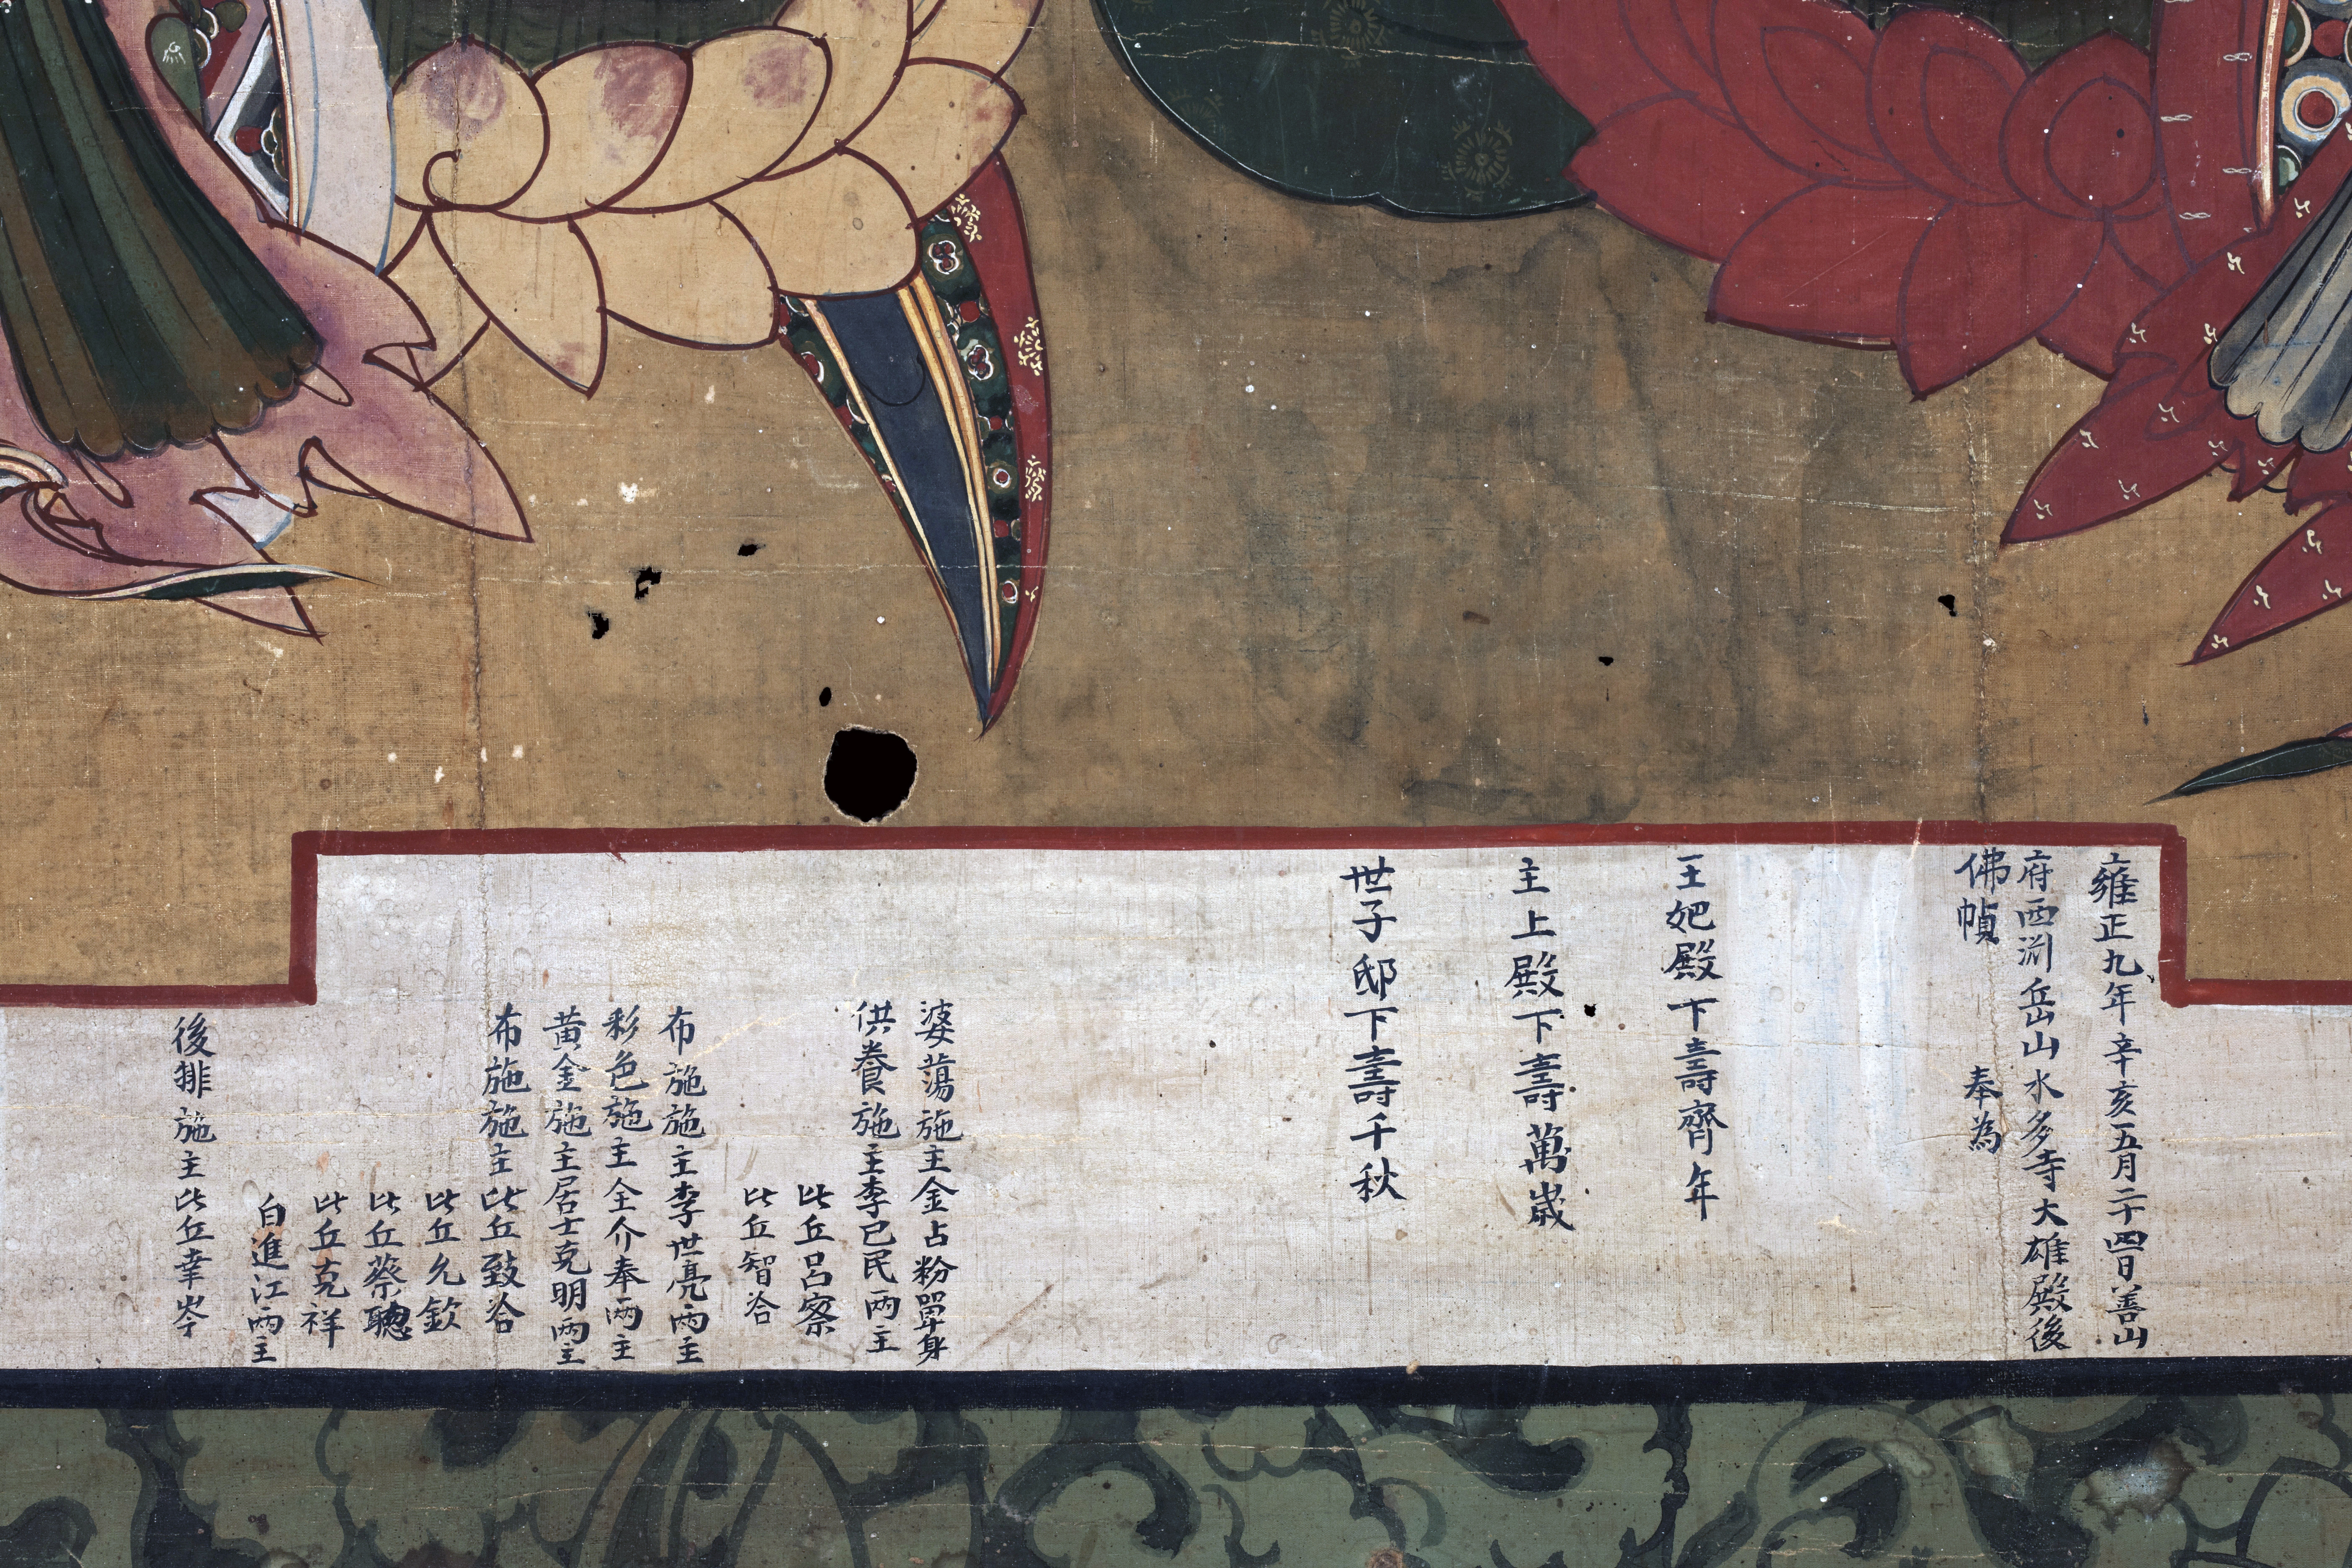 雍正九年辛亥五月二十四日善山
府西淵岳山水多寺大雄殿後
佛幀 奉為
王妃殿下壽齊年
主上殿下壽萬歲
世子邸下壽千秋
婆蕩施主金占粉單身
供養施主李己民兩主
比丘呂察
比丘智洽
布施施主李世亮兩主
彩色施主全介奉兩主
黃金施主居士克明兩主
布施施主比丘致洽
比丘允欽
比丘蔡聰
比丘克祥
白進江兩主
後排施主比丘幸岑